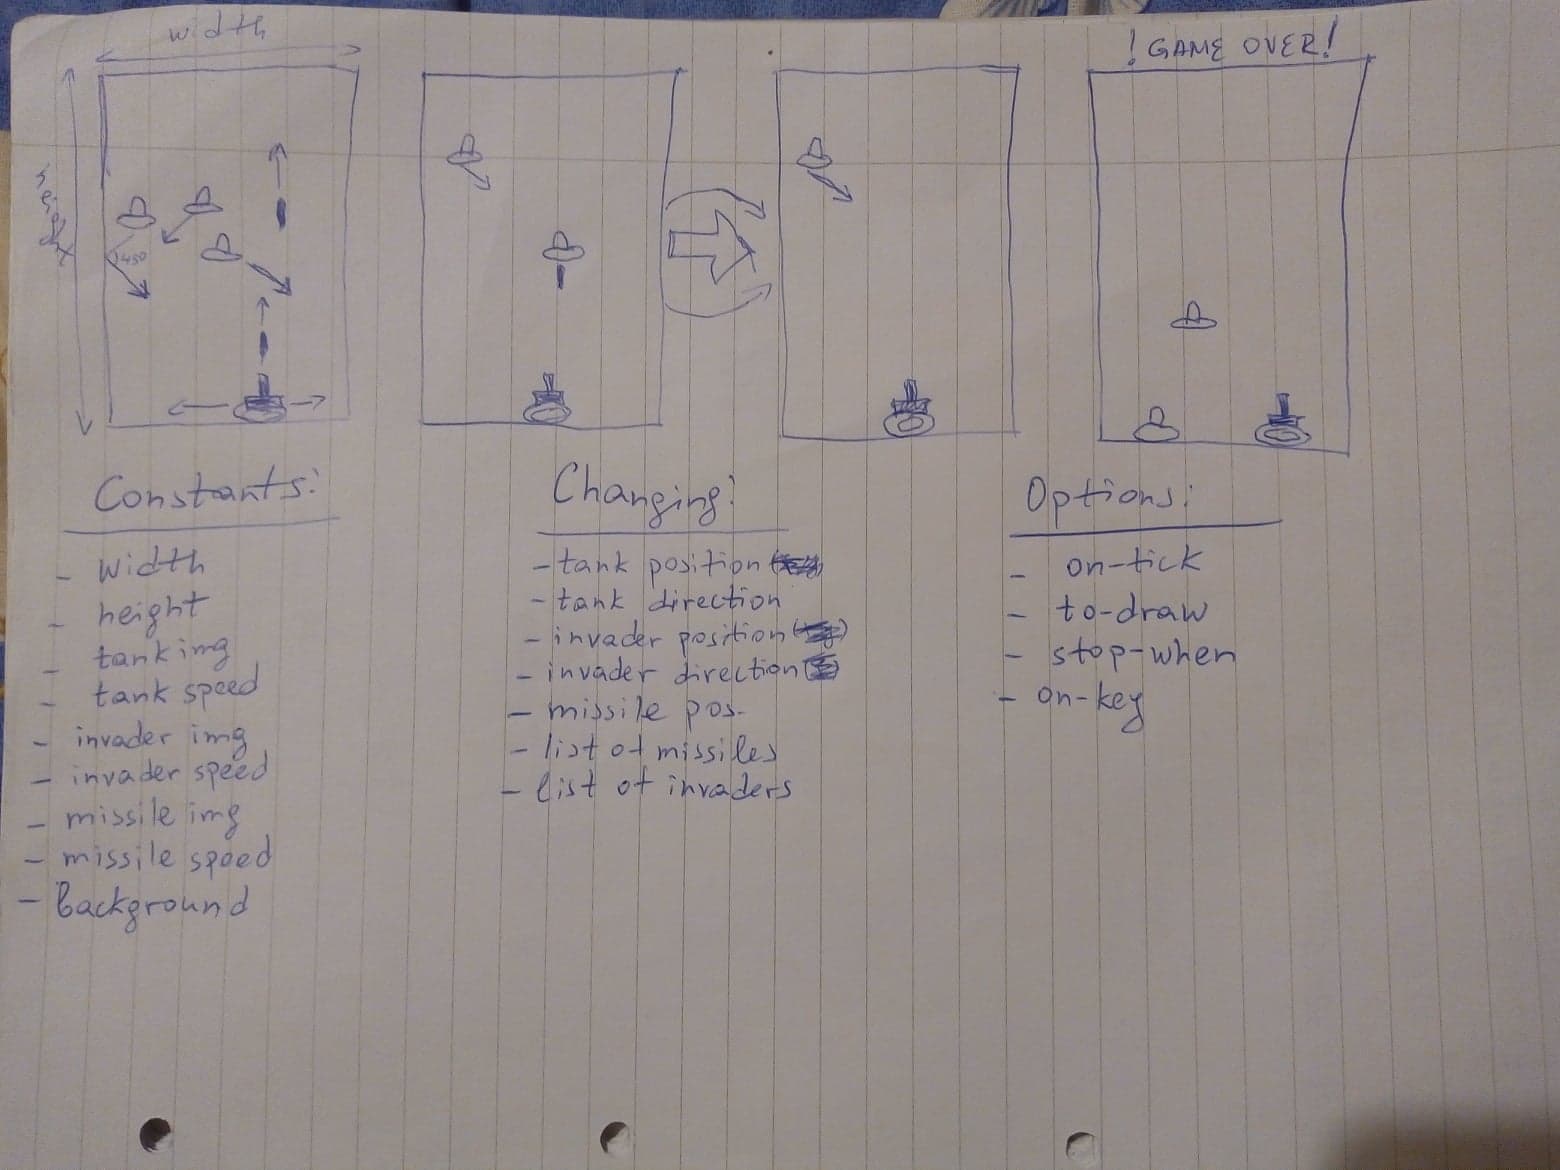 width
! GAME OVER!
height
450
Constants:
- width
- height
- tank img
- tank speed
- invader img
- invader speed
- missile img
- missile speed
- background
Changing:
- tank position
- tank direction
- invader position
- invader direction
- missile pos.
- list of missiles
- list of invaders
Options:
- on-tick
- to-draw
- stop-when
- on-key